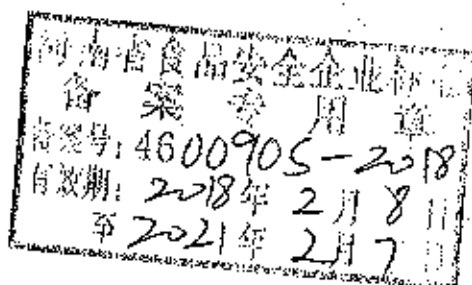 海南省食品安全企业标准
备案专用章
备案号:4600905-2018
有效期:2018年2月8日
至2021年2月7日